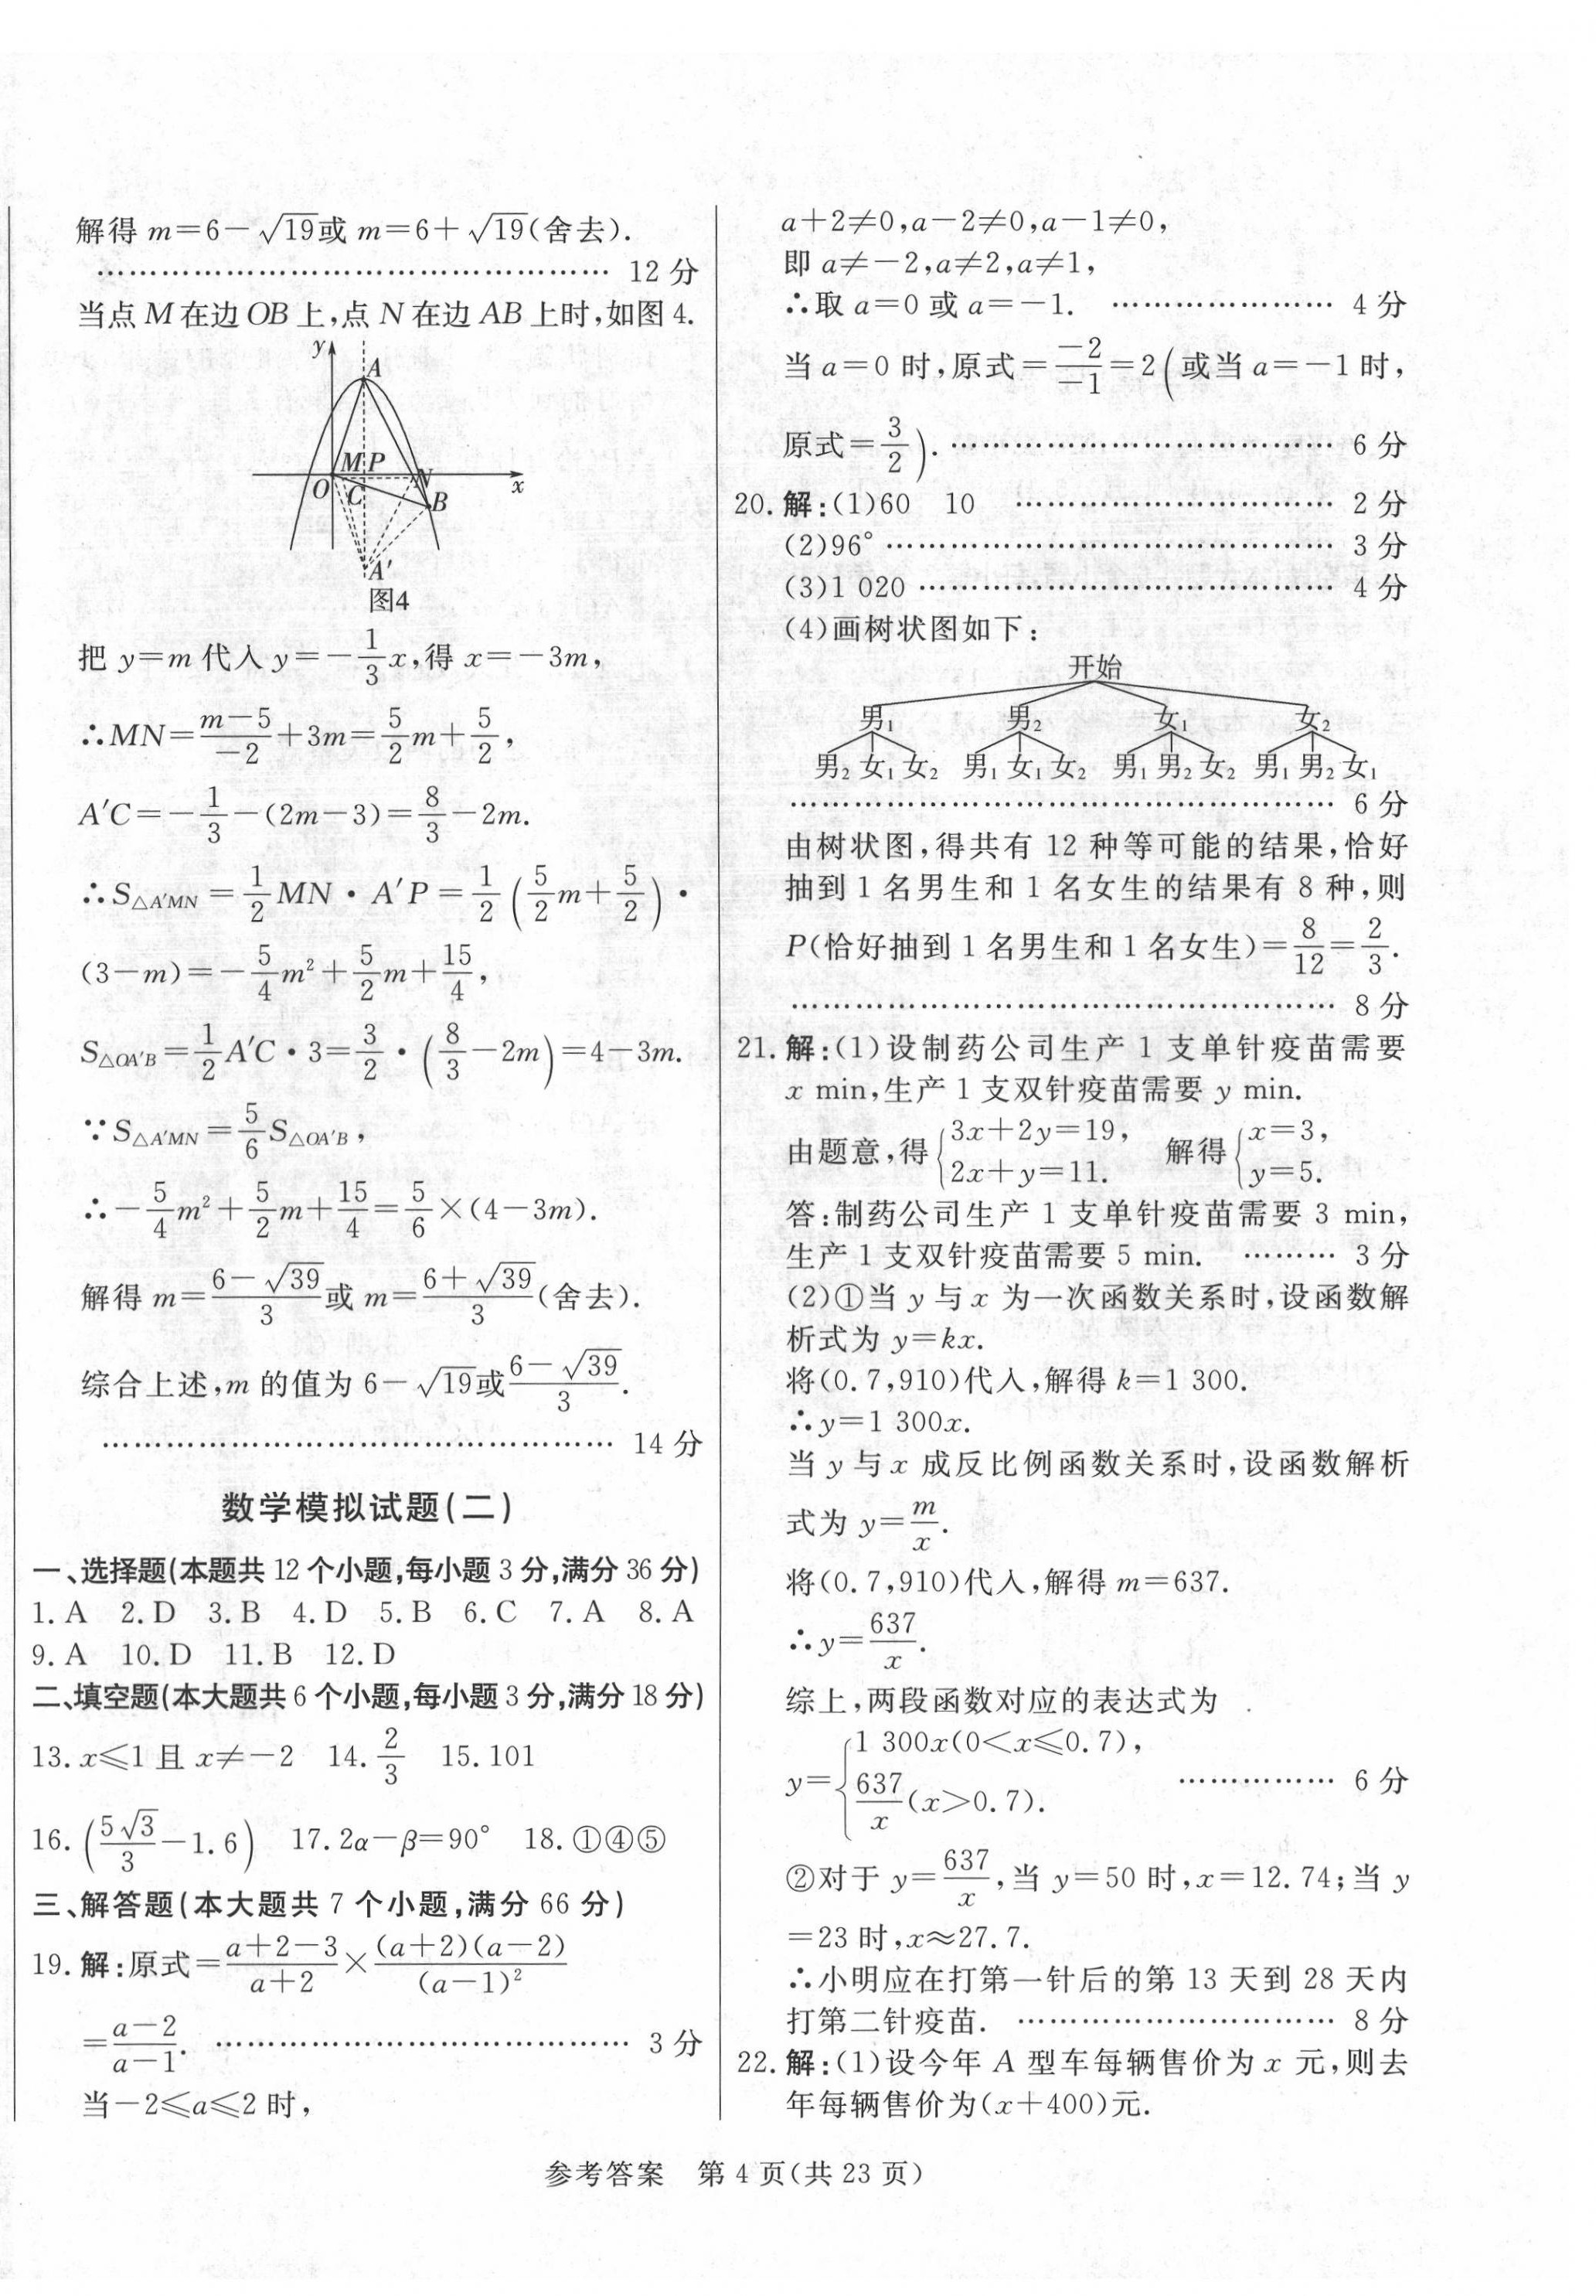 解得 m=6-√19或 m=6+√19(舍去).
………………………………………… 12 分
当点 M 在边 OB 上,点 N 在边 AB 上时,如图 4.
y
A
M P
N
O C x
B
A′
图4
把 y=m 代入 y=-1/3x,得 x=-3m,
∴MN=(m-5)/(-2)+3m=5/2m+5/2,
A′C=-1/3-(2m-3)=8/3-2m.
∴S△A′MN=1/2MN·A′P=1/2(5/2m+5/2)·
(3-m)=-5/4m²+5/2m+15/4,
S△OA′B=1/2A′C·3=3/2·(8/3-2m)=4-3m.
∵S△A′MN=5/6S△OA′B,
∴-5/4m²+5/2m+15/4=5/6×(4-3m).
解得 m=(6-√39)/3或 m=(6+√39)/3(舍去).
综合上述,m 的值为 6-√19或(6-√39)/3.
………………………………………… 14 分
数学模拟试题(二)
一、选择题(本题共 12 个小题,每小题 3 分,满分 36 分)
1. A 2. D 3. B 4. D 5. B 6. C 7. A 8. A
9. A 10. D 11. B 12. D
二、填空题(本大题共 6 个小题,每小题 3 分,满分 18 分)
13. x≤1 且 x≠-2 14. 2/3 15. 101
16. (5√3/3-1.6) 17. 2α-β=90° 18. ①④⑤
三、解答题(本大题共 7 个小题,满分 66 分)
19. 解:原式=(a+2-3)/(a+2)×(a+2)(a-2)/(a-1)²
=(a-2)/(a-1). ………………………………… 3 分
当-2≤a≤2 时,
a+2≠0,a-2≠0,a-1≠0,
即 a≠-2,a≠2,a≠1,
∴取 a=0 或 a=-1. ………………… 4 分
当 a=0 时,原式=-2/-1=2(或当 a=-1 时,
原式=3/2). ……………………………… 6 分
20. 解:(1)60 10 ………………………… 2 分
(2)96° …………………………………… 3 分
(3)1 020 ………………………………… 4 分
(4)画树状图如下:
开始
男₁ 男₂ 女₁ 女₂
男₂ 女₁ 女₂ 男₁ 女₁ 女₂ 男₁ 男₂ 女₂ 男₁ 男₂ 女₁
…………………………………………… 6 分
由树状图,得共有 12 种等可能的结果,恰好
抽到 1 名男生和 1 名女生的结果有 8 种,则
P(恰好抽到 1 名男生和 1 名女生)=8/12=2/3.
…………………………………………… 8 分
21. 解:(1)设制药公司生产 1 支单针疫苗需要
x min,生产 1 支双针疫苗需要 y min.
由题意,得{3x+2y=19, 2x+y=11. 解得{x=3, y=5.
答:制药公司生产 1 支单针疫苗需要 3 min,
生产 1 支双针疫苗需要 5 min. ……… 3 分
(2)①当 y 与 x 为一次函数关系时,设函数解
析式为 y=kx.
将(0.7,910)代入,解得 k=1 300.
∴y=1 300x.
当 y 与 x 成反比例函数关系时,设函数解析
式为 y=m/x.
将(0.7,910)代入,解得 m=637.
∴y=637/x.
综上,两段函数对应的表达式为
y={1 300x(0<x≤0.7), 637/x(x>0.7). …………… 6 分
②对于 y=637/x,当 y=50 时,x=12.74;当 y
=23 时,x≈27.7.
∴小明应在打第一针后的第 13 天到 28 天内
打第二针疫苗. ………………………… 8 分
22. 解:(1)设今年 A 型车每辆售价为 x 元,则去
年每辆售价为(x+400)元.
参考答案 第 4 页(共 23 页)